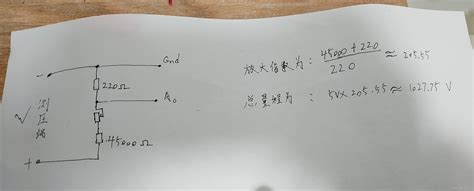 Gnd
-
220Ω
A0
测压端
45000Ω
+
放大倍数为: 45000 + 220 / 220 ≈ 205.55
总量程为 : 5V × 205.55 ≈ 1027.75 V